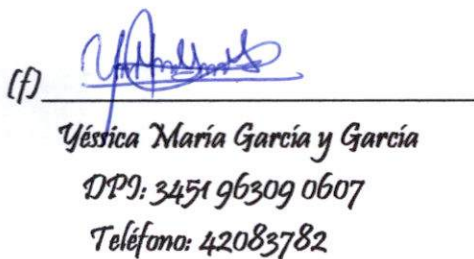 (f)
Yéssica María García y García
DPI: 3451 96309 0607
Teléfono: 42083782